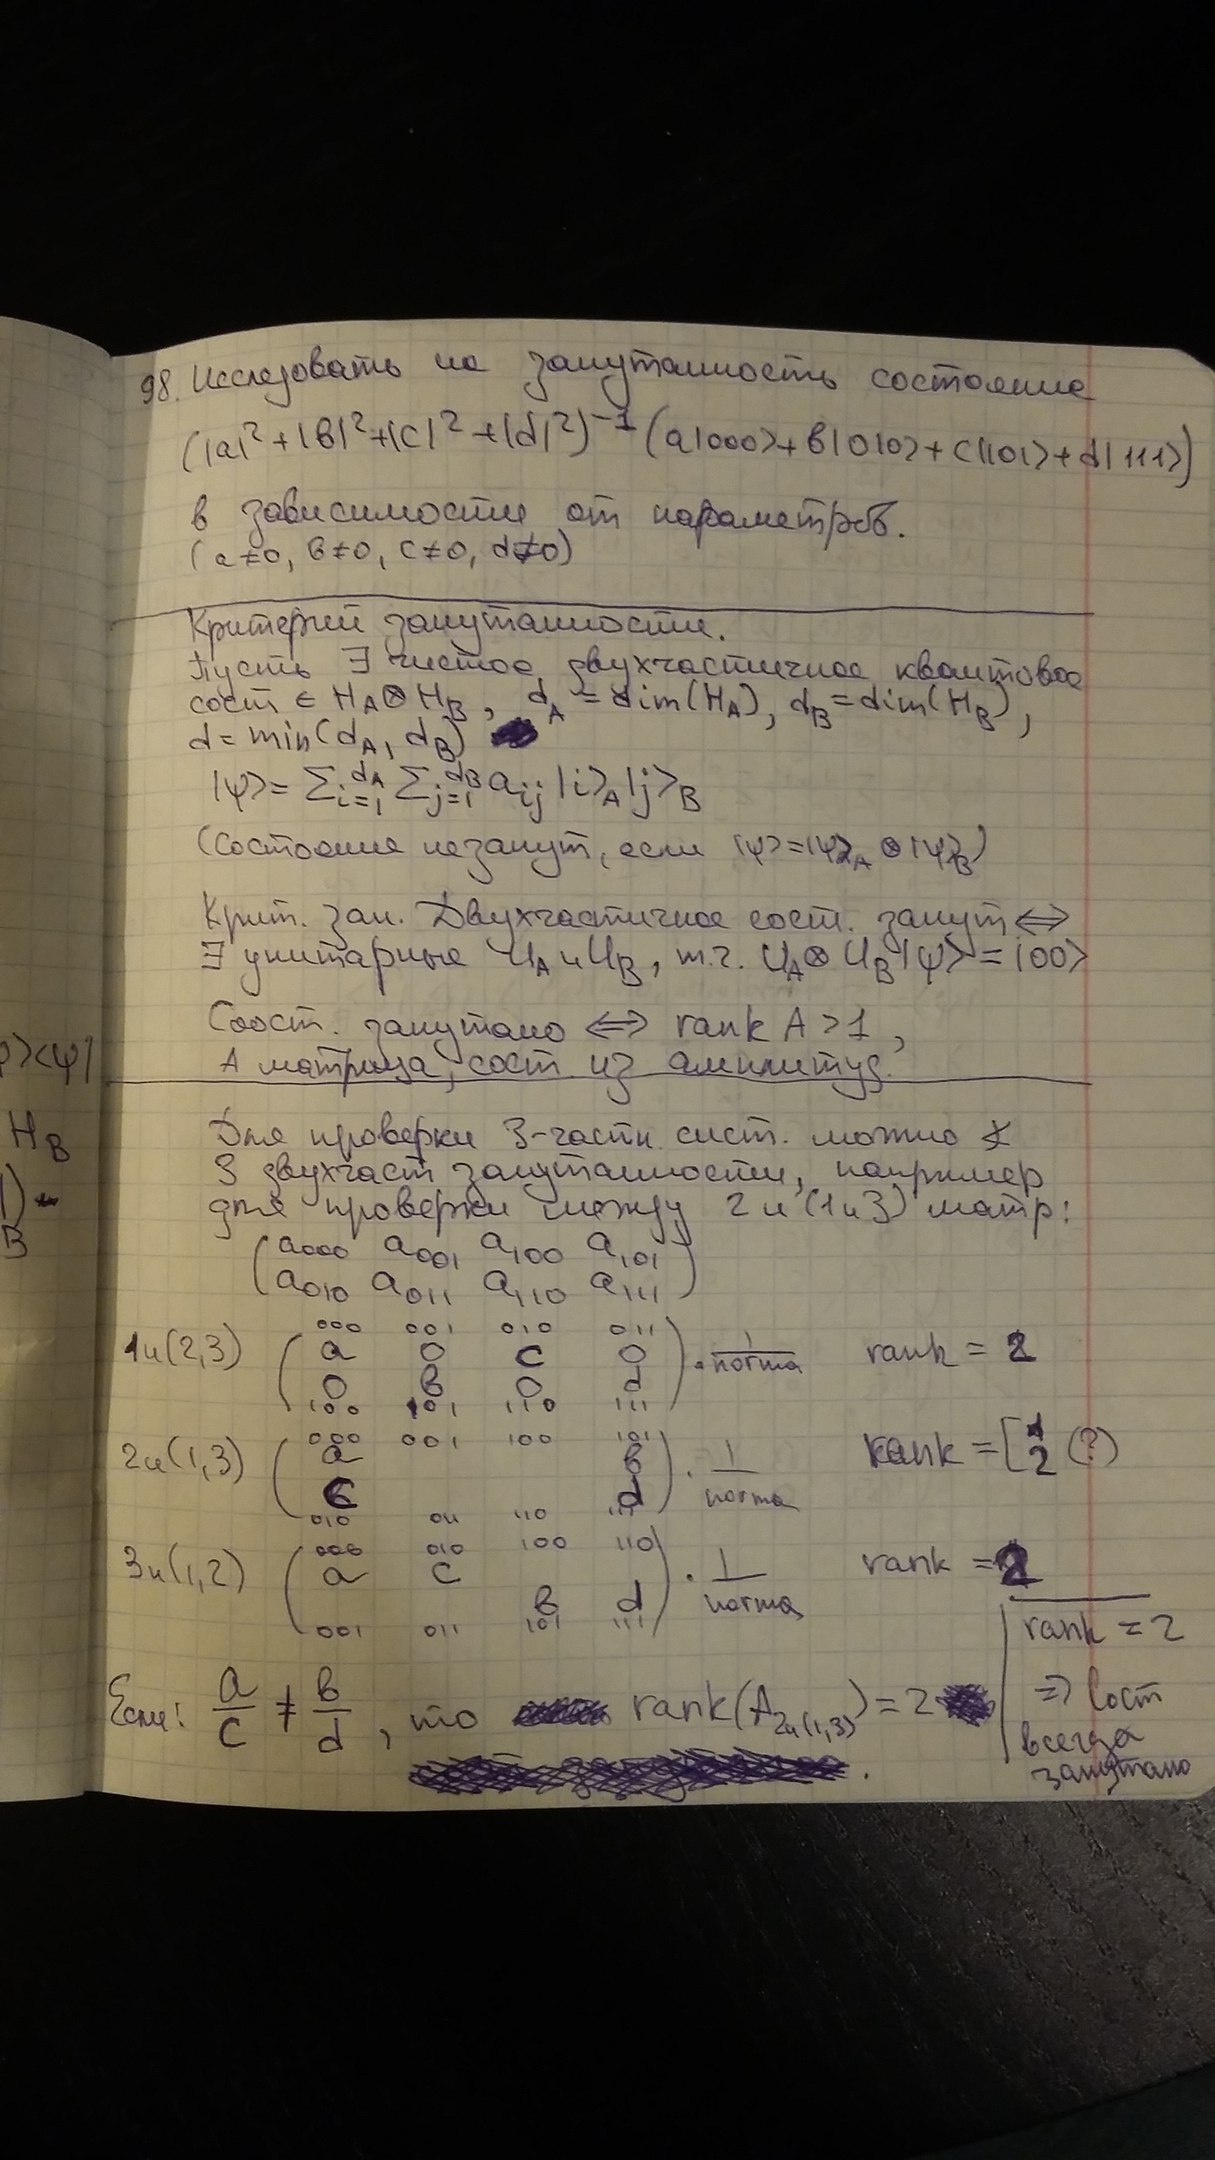 98. Исследовать на запутанность состояние
(|a|²+|b|²+|c|²+|d|²)⁻¹ (a|000>+b|010>+c|101>+d|111>)
в зависимости от параметров.
(a≠0, b≠0, c≠0, d≠0)
Критерий запутанности.
Пусть ∃ чистое двухчастичное квантовое
сост ∈ H_A⊗H_B, d_A = dim(H_A), d_B = dim(H_B),
d = min(d_A, d_B)
|ψ> = Σ_{i=1}^{d_A} Σ_{j=1}^{d_B} a_{ij} |i>_A|j>_B
(Состояние незапут, если |ψ>=|ψ>_A ⊗|ψ>_B)
Крит. зап. Двухчастичное сост. запут ⇔
∃ унитарные U_A и U_B, т.ч. U_A⊗U_B|ψ> = |00>
Сост. запутано ⇔ rank A > 1,
A матрица, сост. из амплитуд.
Для проверки 3-частн. сист. можно
3 двухчаст запутанности, например
для проверки между 2 и (1 и 3) матр:
(a₀₀₀ a₀₀₁ a₁₀₀ a₁₀₁
a₀₁₀ a₀₁₁ a₁₁₀ a₁₁₁)
000 001 010 011
1 и (2,3) (a 0 c 0 · 1/norma rank = 2
0 b 0 d)
100 101 110 111
000 001 100 101
2 и (1,3) (a b · 1/norma rank = [1 2 (?)
c d)
010 011 110 111
000 010 100 110
3 и (1,2) (a c · 1/norma rank = 2
b d)
001 011 101 111
rank = 2
Если: a/c ≠ b/d, то rank(A_{2и(1,3)}) = 2
⇒ Сост
всегда
запутано
|ψ><ψ|
H_B
B